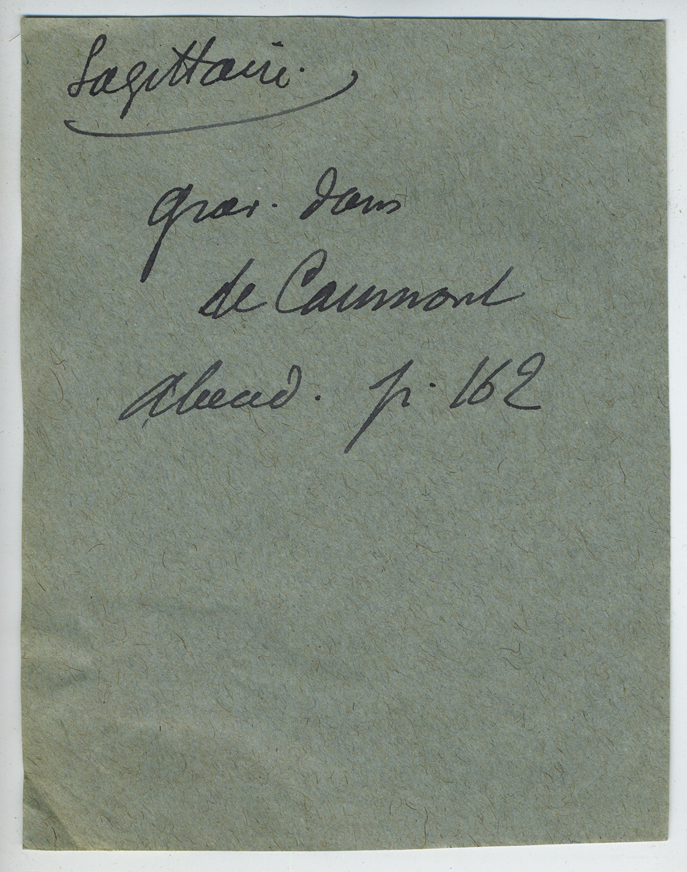 Sagittaire.
grav. dans
de Caumont
abécéd. p. 162